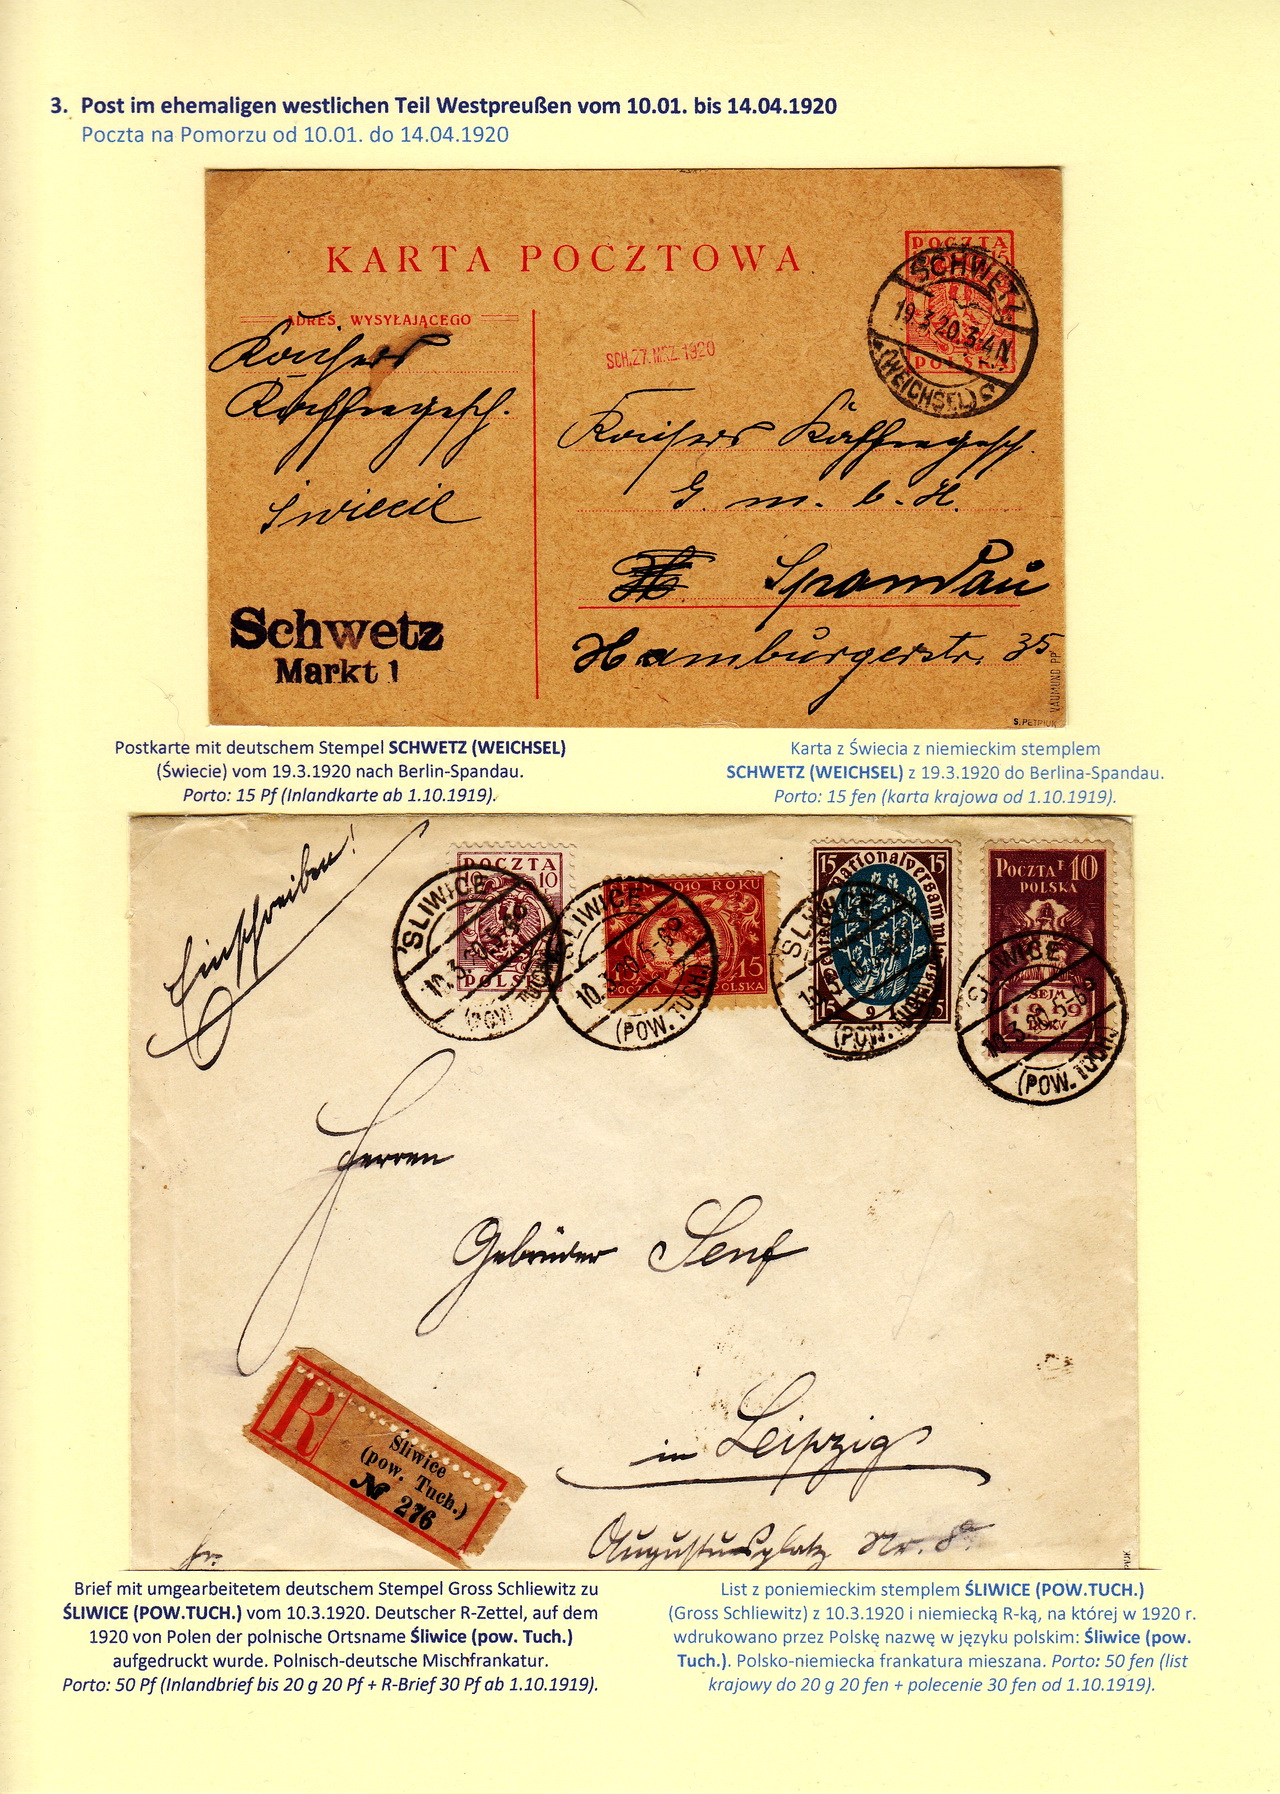 3. Post im ehemaligen westlichen Teil Westpreußen vom 10.01. bis 14.04.1920
Poczta na Pomorzu od 10.01. do 14.04.1920
KARTA POCZTOWA
POCZTA
15
POLSKA
SCHWETZ
19.3.20.3-4N
(WEICHSEL)
ADRES WYSYŁAJĄCEGO
SCH.27.MRZ.1920
Kaisers
Kaffeegesch.
Swiecie
Kaisers Kaffeegesch.
G. m. b. H.
Spandau
Hamburgerstr. 35
Schwetz
Markt 1
VAUMUND PP
S. PETRIUK
Postkarte mit deutschem Stempel SCHWETZ (WEICHSEL)
(Świecie) vom 19.3.1920 nach Berlin-Spandau.
Porto: 15 Pf (Inlandkarte ab 1.10.1919).
Karta z Świecia z niemieckim stemplem
SCHWETZ (WEICHSEL) z 19.3.1920 do Berlina-Spandau.
Porto: 15 fen (karta krajowa od 1.10.1919).
Einschreiben!
POCZTA
10
POLSKA
SEJM 1919 ROKU
15
POCZTA POLSKA
15 15
nationalversammlung
15 15
POCZTA F 10
POLSKA
SEJM
1919
ROKU
ŚLIWICE
10.3.20.5-6N
(POW. TUCH.)
ŚLIWICE
10.3.20.5-6N
(POW. TUCH.)
ŚLIWICE
(POW. TUCH.)
ŚLIWICE
10.3.20.5-6N
(POW. TUCH.)
Herren
Gebrüder Senf
in Leipzig
Augustusplatz Nr. 8
R
Śliwice
(pow. Tuch.)
№ 276
Brief mit umgearbeitetem deutschem Stempel Gross Schliewitz zu
ŚLIWICE (POW.TUCH.) vom 10.3.1920. Deutscher R-Zettel, auf dem
1920 von Polen der polnische Ortsname Śliwice (pow. Tuch.)
aufgedruckt wurde. Polnisch-deutsche Mischfrankatur.
Porto: 50 Pf (Inlandbrief bis 20 g 20 Pf + R-Brief 30 Pf ab 1.10.1919).
List z poniemieckim stemplem ŚLIWICE (POW.TUCH.)
(Gross Schliewitz) z 10.3.1920 i niemiecką R-ką, na której w 1920 r.
wdrukowano przez Polskę nazwę w języku polskim: Śliwice (pow.
Tuch.). Polsko-niemiecka frankatura mieszana. Porto: 50 fen (list
krajowy do 20 g 20 fen + polecenie 30 fen od 1.10.1919).